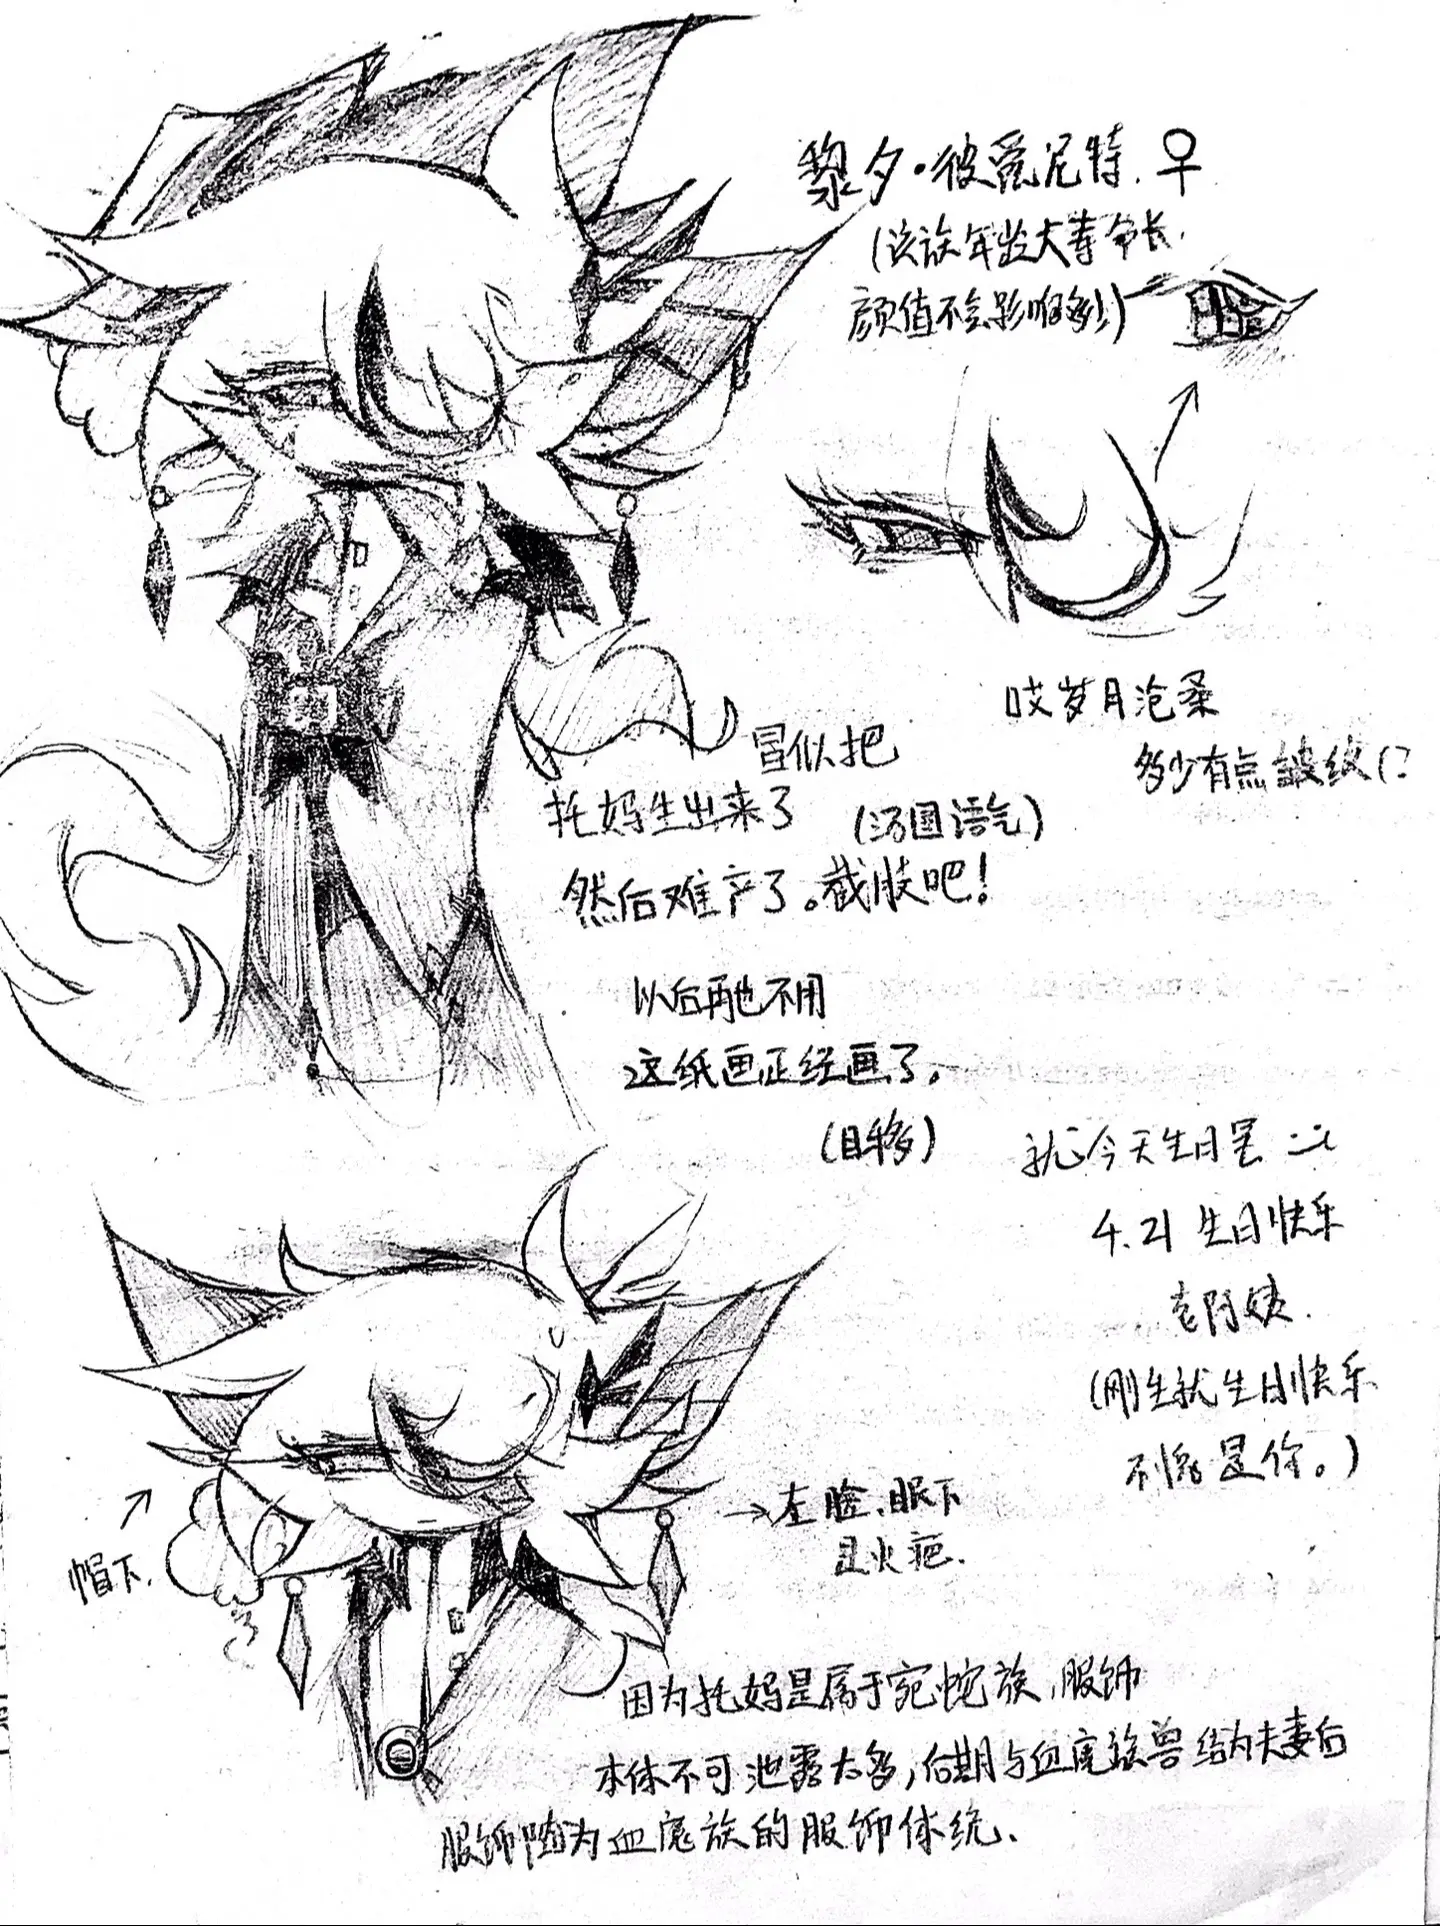 黎夕·彼爱尼特.♀
(该族年龄大寿命长.
颜值不会影响多少)
哎岁月沧桑
多少有点皱纹(:
冒似把
托妈生出来了
(汤圆语气)
然后难产了。截肢吧!
以后再也不用
这纸画正经画了。
(目移)
就今天生日罢
4.21 生日快乐
老阿姨.
(刚生就生日快乐
不愧是你。)
→左脸,眼下
是火疤.
帽下.
因为托妈是属于宛蛇族,服饰
本体不可泄露太多,后期与血魔族兽结为夫妻后
服饰随为血魔族的服饰体统、